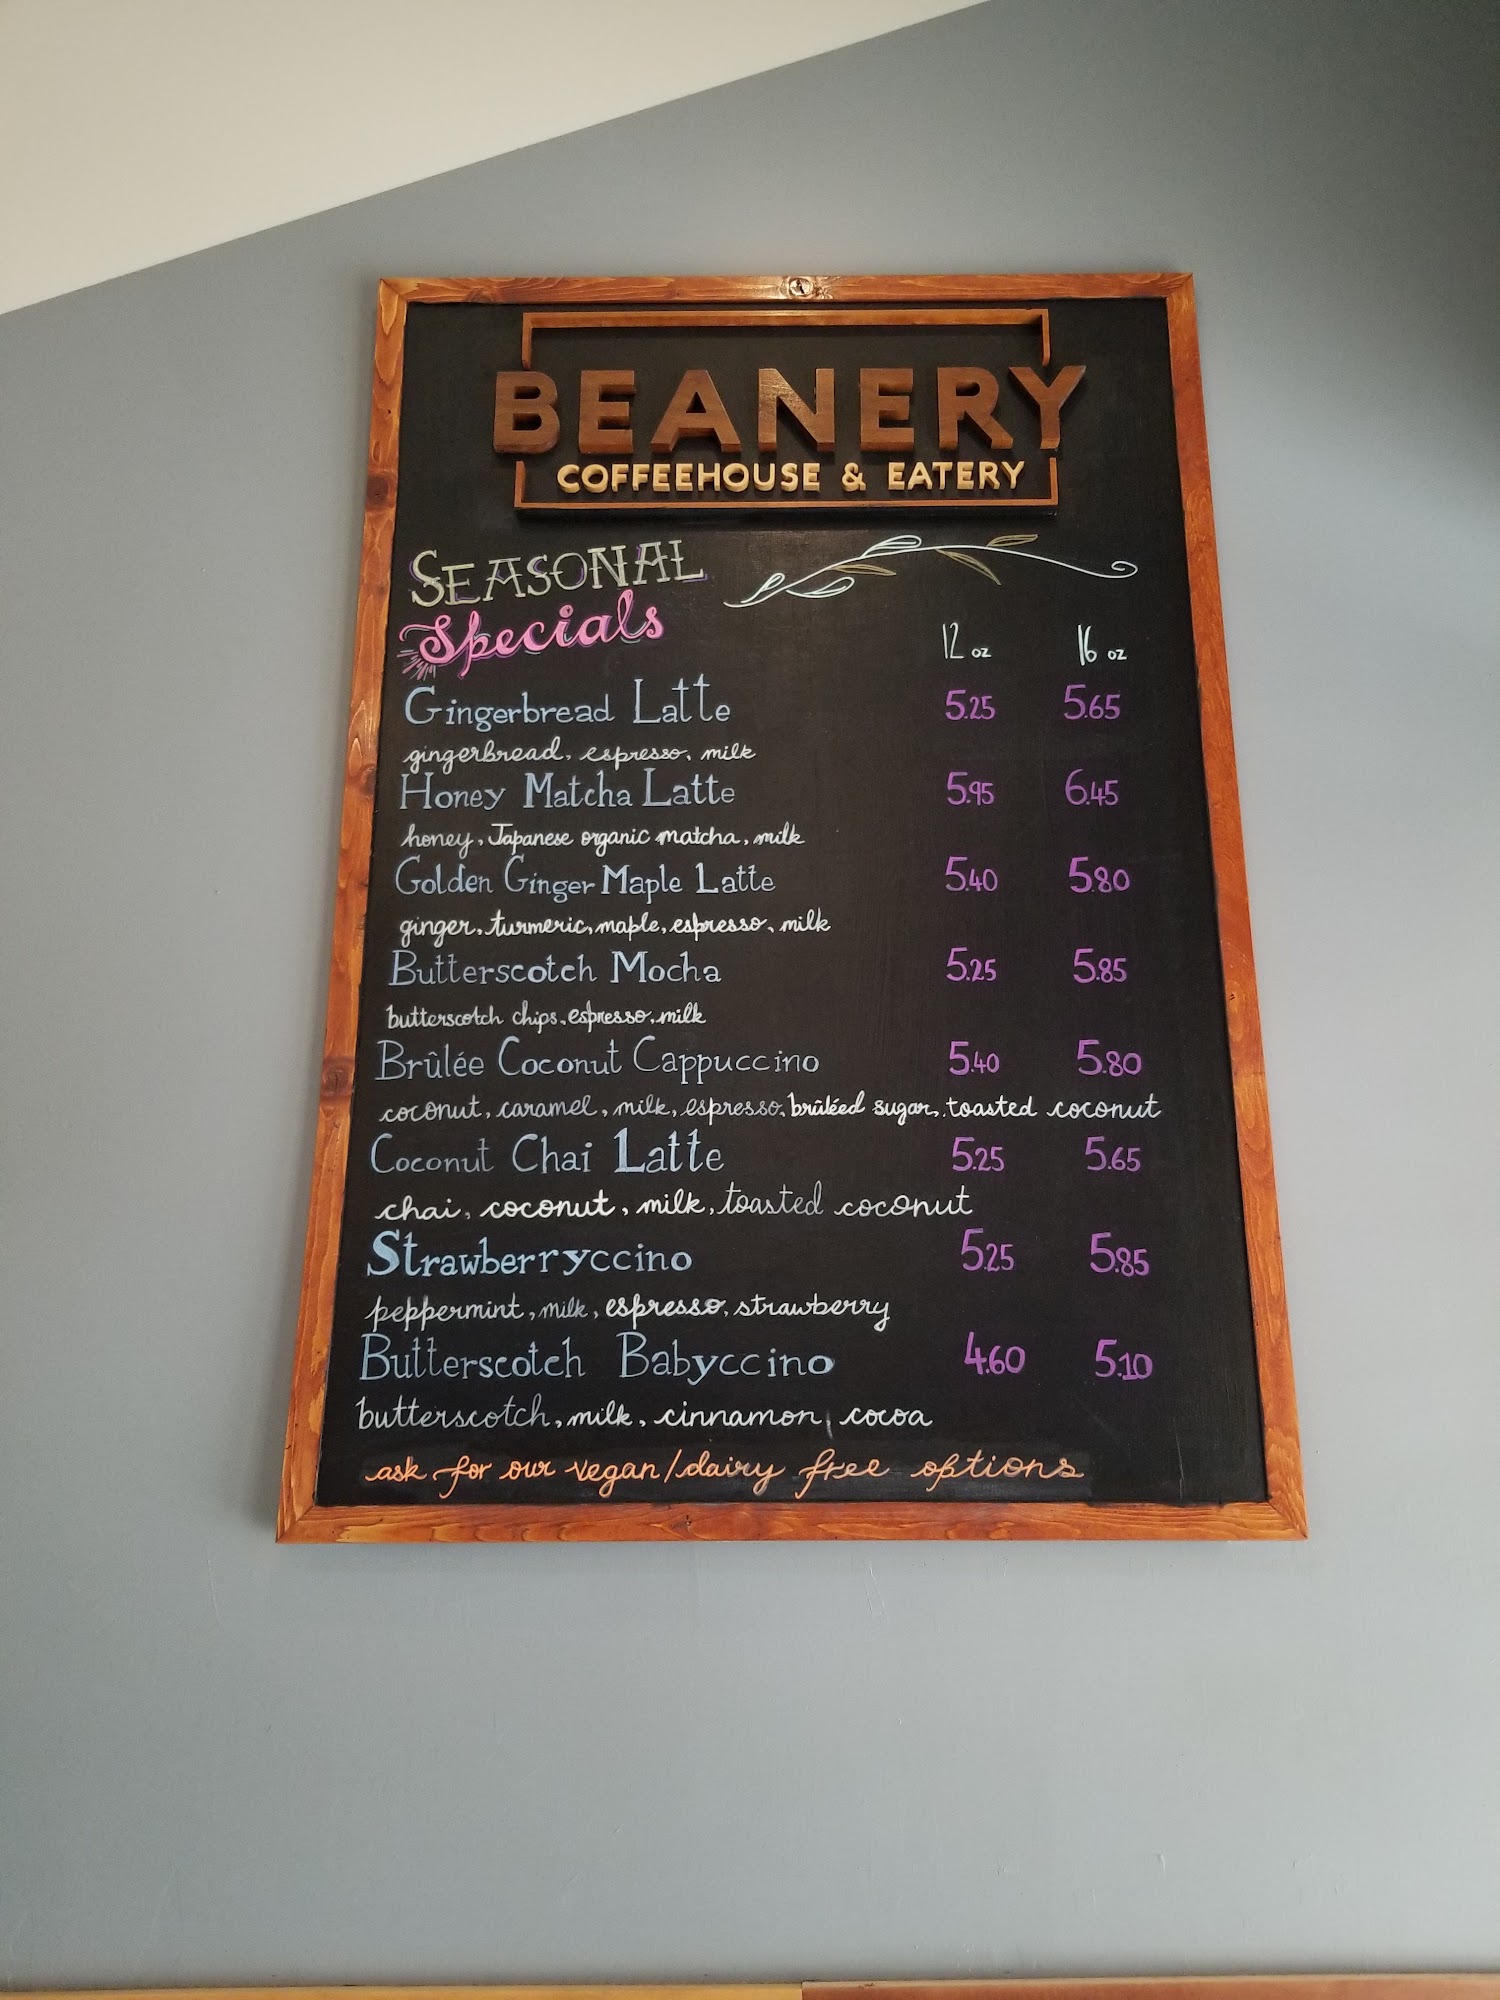 BEANERY
COFFEEHOUSE & EATERY
SEASONAL
Specials
12 oz 16 oz
Gingerbread Latte 5.25 5.65
gingerbread, espresso, milk
Honey Matcha Latte 5.95 6.45
honey, Japanese organic matcha, milk
Golden Ginger Maple Latte 5.40 5.80
ginger, turmeric, maple, espresso, milk
Butterscotch Mocha 5.25 5.85
butterscotch chips, espresso, milk
Brûlée Coconut Cappuccino 5.40 5.80
coconut, caramel, milk, espresso, brûléed sugar, toasted coconut
Coconut Chai Latte 5.25 5.65
chai, coconut, milk, toasted coconut
Strawberryccino 5.25 5.85
peppermint, milk, espresso, strawberry
Butterscotch Babyccino 4.60 5.10
butterscotch, milk, cinnamon, cocoa
ask for our vegan/dairy free options